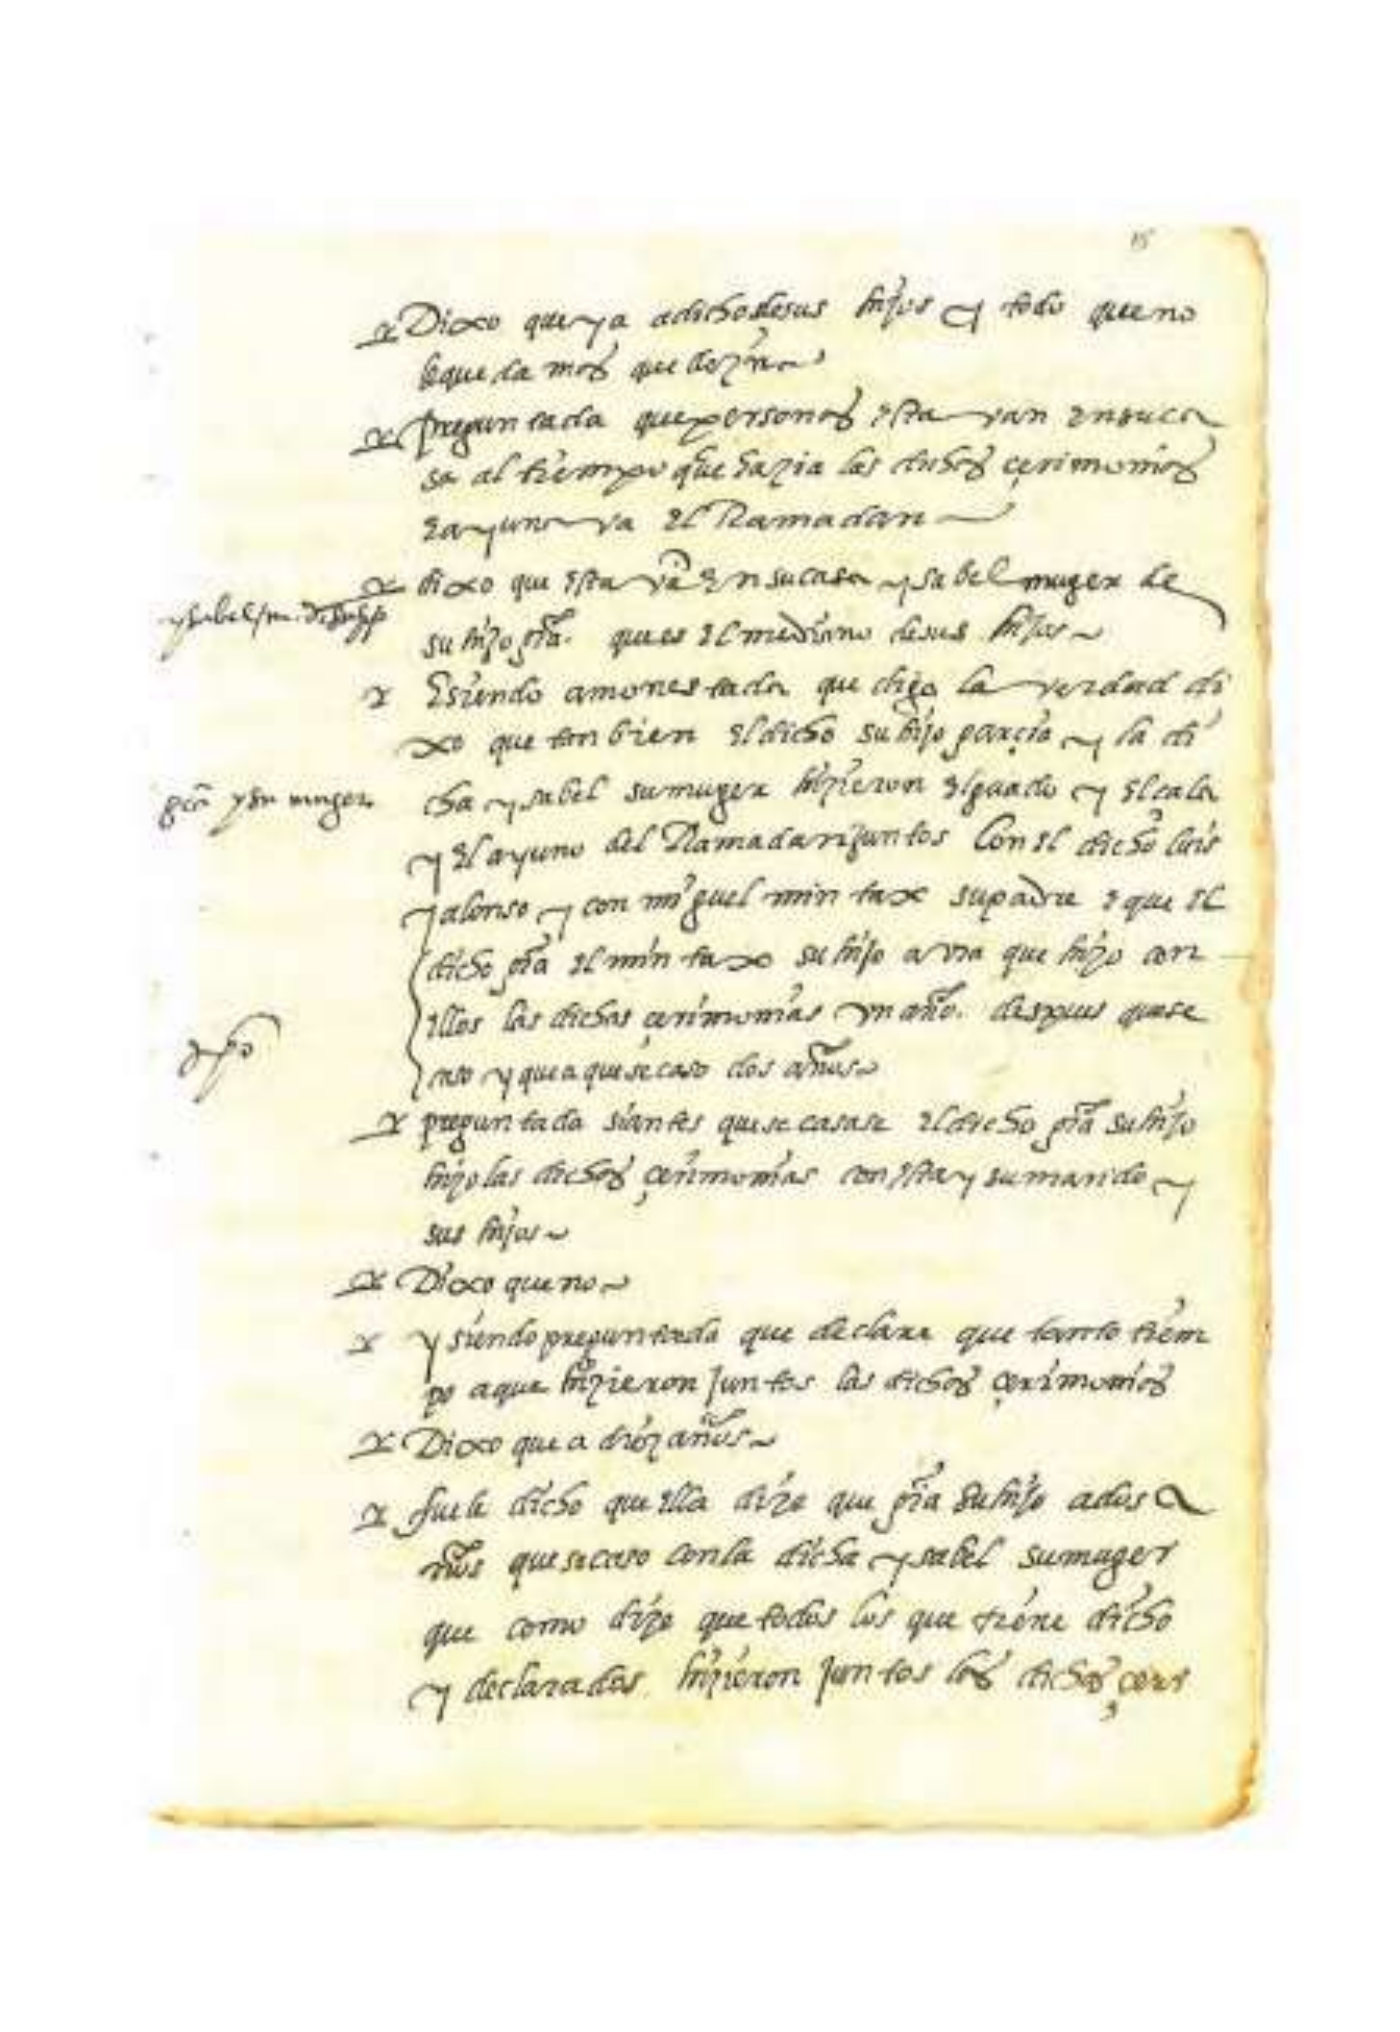 15
Dixo que ya a dicho de sus hijos y todo que no
le queda mas que dezir
preguntada que personas estavan en su ca
sa al tiempo que hazia las dichas çerimonias
e ayunava el Ramadan
dixo que estavā en su casa ysabel muger de
su hijo grā. que es el mediano de sus hijos
E siendo amonestada que diga la verdad di
xo que tanbien el dicho su hijo garçia y la di
cha ysabel su muger hizieron el guado y el cala
y el ayuno del Ramadan juntos con el dicho luis
y alonso y con miguel mintax su padre e que el
dicho grā el mintaxo su hijo avra que hizo con
ellos las dichas çerimonias un año. despues que se
caso y que a que se caso dos años
preguntada si antes que se casase el dicho grā su hijo
hizo las dichas çerimonias con esta y su marido y
sus hijos
Dixo que no
y siendo preguntada que declare que tanto tiem
po a que hizieron juntos las dichas çerimonias
Dixo que a diez años
fue le dicho que ella dize que grā su hijo a dos a
ños que se caso con la dicha ysabel su muger
que como dize que todos los que tiene dicho
y declarados hizieron juntos las dichas çeri
ysabel
y su muger